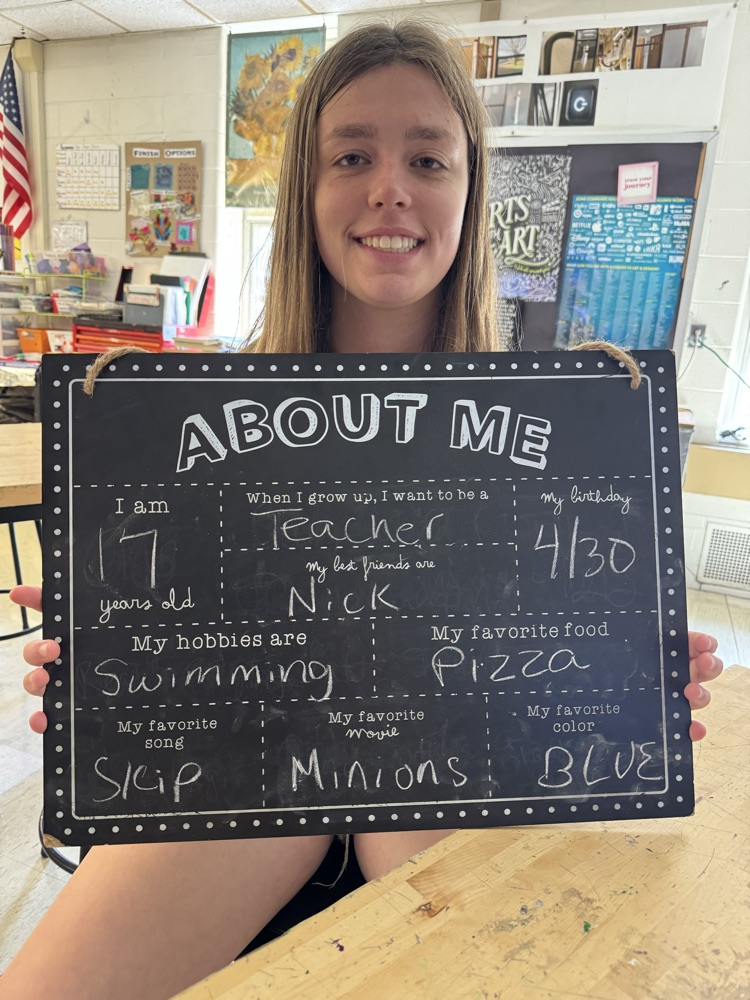 FINISH OPTIONS
ARTS
ART
trust your
journey
NETFLIX
Disney
ABOUT ME
I am
17
years old
When I grow up, I want to be a
Teacher
My birthday
4/30
My best friends are
Nick
My hobbies are
Swimming
My favorite food
Pizza
My favorite
song
Skip
My favorite
movie
Minions
My favorite
color
BLUE